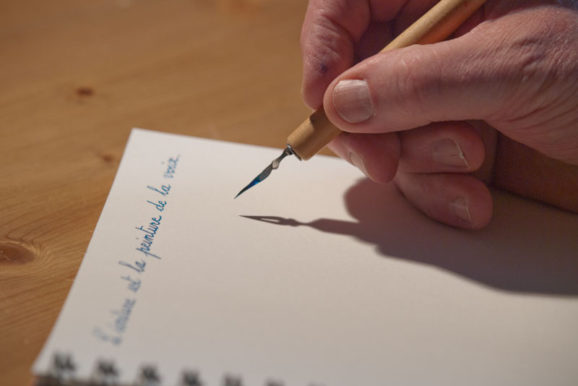 L'écriture est la peinture de la voix.